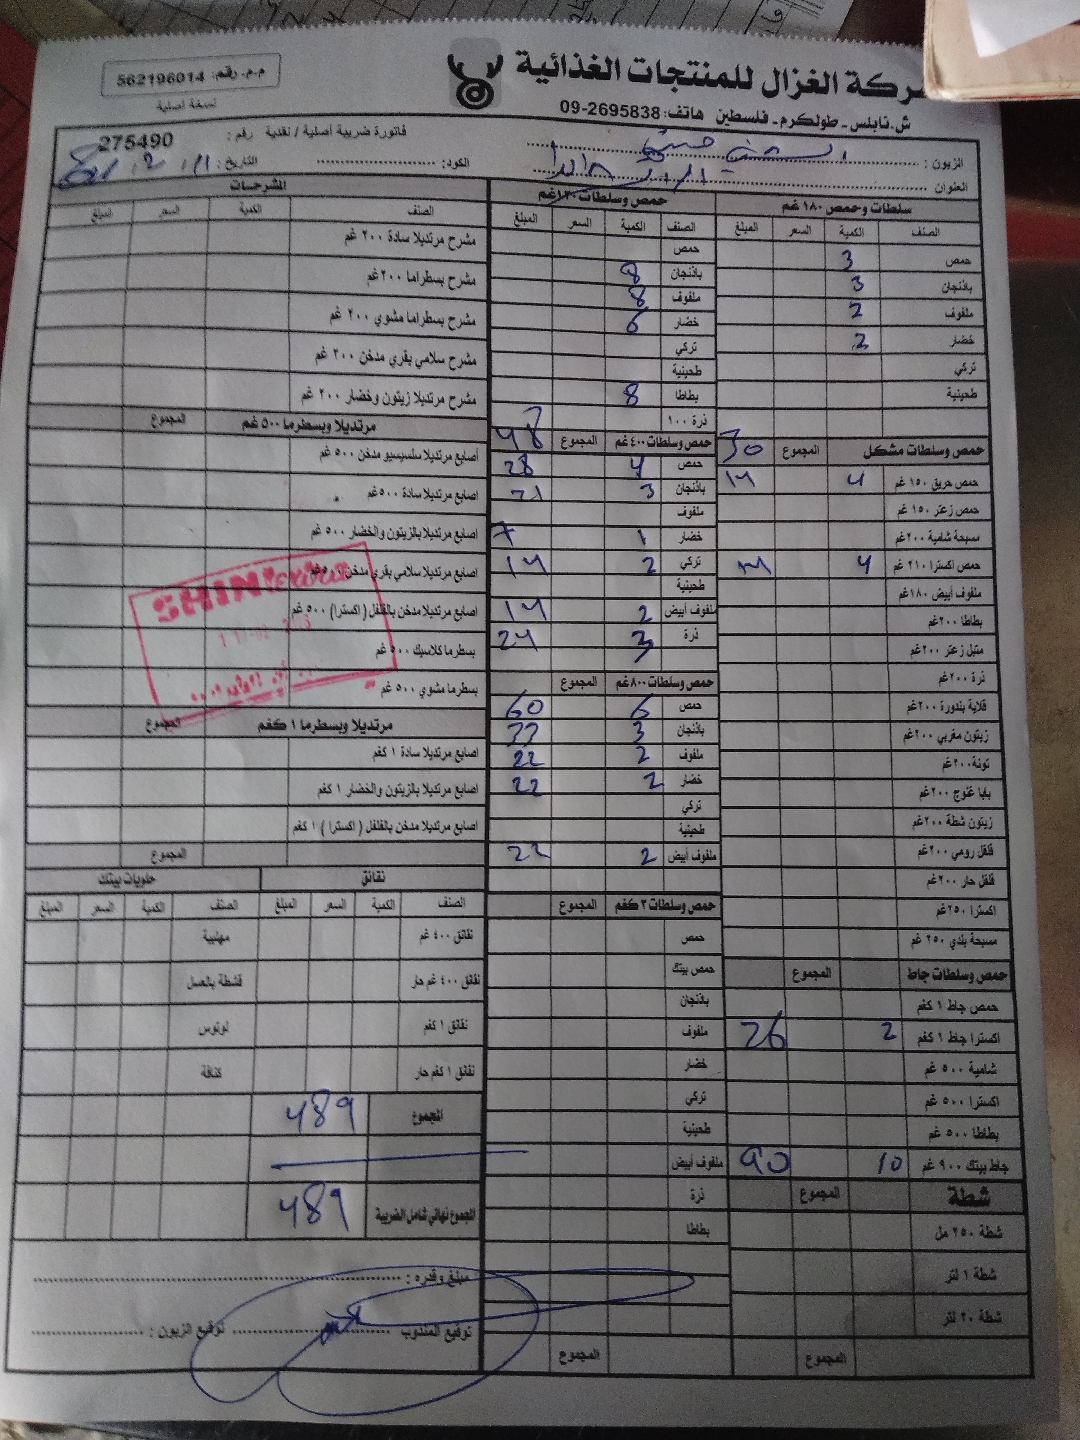 شركة الغزال للمنتجات الغذائية
ش.نابلس - طولكرم - فلسطين هاتف: 2695838-09
م.م. رقم: 562196014
نسخة أصلية
فاتورة ضريبة أصلية / نقدية رقم: 275490
الزبون:
التاريخ: الكود:
العنوان
سلطات وحمص ١٨٠ غم
الصنف الكمية السعر المبلغ
حمص 3
باذنجان 3
ملفوف 2
خضار 2
تركي
طحينية
حمص وسلطات مشكل المجموع 30
حمص حريق ١٥٠ غم 4 14
حمص زعتر ١٥٠ غم
مسبحة شامية ٢٠٠غم
حمص اكسترا ٢١٠ غم 4
ملفوف أبيض ١٨٠غم
بطاطا ٢٠٠غم
متبل زعتر ٢٠٠غم
ذرة ٢٠٠غم
قلاية بندورة ٢٠٠غم
زيتون مغربي ٢٠٠غم
تونة٢٠٠غم
بابا غنوج ٢٠٠غم
زيتون شطة ٢٠٠غم
فلفل رومي ٢٠٠غم
فلفل حار ٢٠٠غم
اكسترا ٢٥٠غم
مسبحة بلدي ٢٥٠ غم
حمص وسلطات جاط المجموع
حمص جاط ١ كغم
اكسترا جاط ١ كغم 2 26
شامية ٥٠٠ غم
اكسترا ٥٠٠ غم
بطاطا ٥٠٠ غم
جاط بيتك ٩٠٠ غم 10 90
شطة المجموع
شطة ٢٥٠ مل
شطة ١ لتر
شطة ٢٠ لتر
المجموع
حمص وسلطات ١٢٠غم
الصنف الكمية السعر المبلغ
حمص
باذنجان 8
ملفوف 8
خضار 6
تركي
طحينية
بطاطا 8
ذرة ١٠٠
48
حمص وسلطات ٤٠٠غم المجموع
حمص 4 28
باذنجان 3 21
ملفوف
خضار 1 7
تركي 2 14
طحينية
ملفوف أبيض 2 14
ذرة 3 24
حمص وسلطات ٨٠٠غم المجموع
حمص 6 60
باذنجان 3 33
ملفوف 2 22
خضار 2 22
تركي
طحينية
ملفوف أبيض 2 22
حمص وسلطات ٢كغم المجموع
حمص
حمص بيتك
باذنجان
ملفوف
خضار
تركي
طحينية
ملفوف أبيض
ذرة
بطاطا
المجموع
المشرحات
الصنف الكمية السعر المبلغ
مشرح مرتديلا سادة ٢٠٠ غم
مشرح بسطراما ٢٠٠غم
مشرح بسطراما مشوي ٢٠٠ غم
مشرح سلامي بقري مدخن ٢٠٠ غم
مشرح مرتديلا زيتون وخضار ٢٠٠ غم
مرتديلا وبسطرما ٥٠٠غم المجموع
أصابع مرتديلا سلسيسيو مدخن ٥٠٠ غم
اصابع مرتديلا سادة ٥٠٠غم
اصابع مرتديلا بالزيتون والخضار ٥٠٠ غم
اصابع مرتديلا سلامي بقري مدخن ٥٠٠غم
اصابع مرتديلا مدخن بالفلفل (اكسترا) ٥٠٠ غم
بسطرما كلاسيك ٥٠٠ غم
بسطرما مشوي ٥٠٠ غم
مرتديلا وبسطرما ١كغم المجموع
اصابع مرتديلا سادة ١ كغم
اصابع مرتديلا بالزيتون والخضار ١ كغم
اصابع مرتديلا مدخن بالفلفل (اكسترا) ١ كغم
المجموع
نقانق حلويات بيتك
الصنف الكمية السعر المبلغ الصنف الكمية السعر المبلغ
نقانق ٤٠٠ غم مهلبية
نقانق ٤٠٠ غم حار قشطة بالعسل
نقانق ١ كغم لوتوس
نقانق ١ كغم حار كنافة
المجموع 489
المجموع نهائي شامل الضريبة 489
مبلغ وقدره:
توقيع المندوب توقيع الزبون: